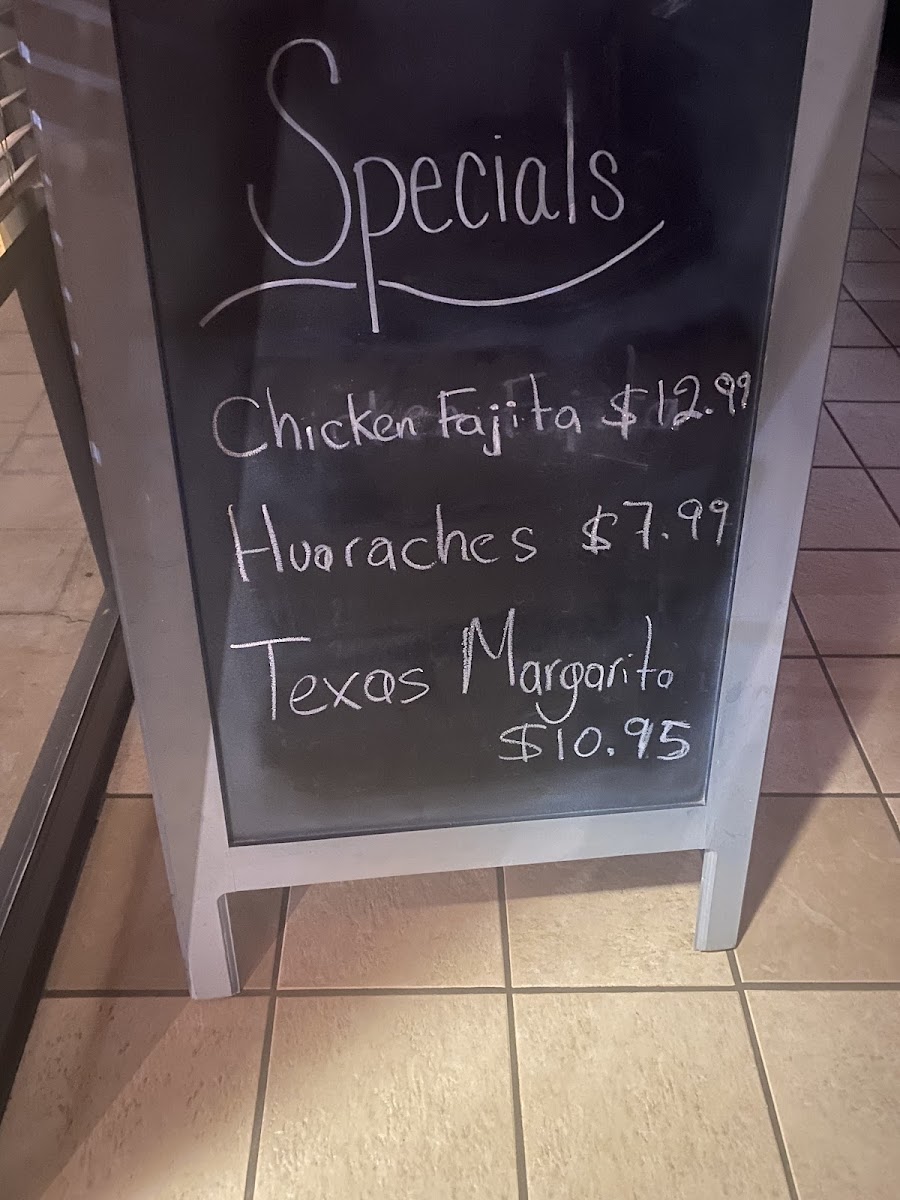 Specials
Chicken Fajita $12.99
Huaraches $7.99
Texas Margarita
$10.95